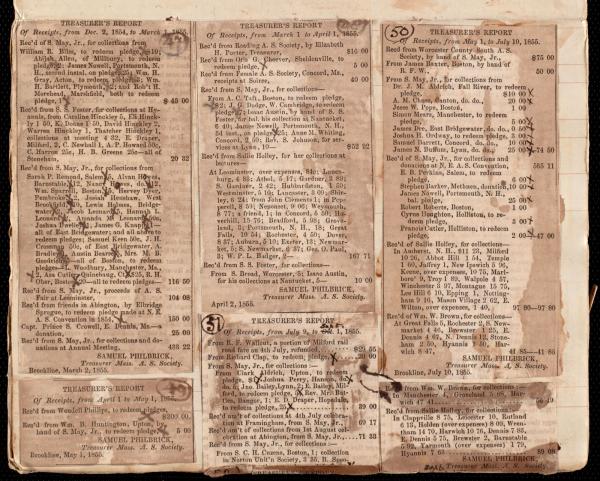 TREASURER'S REPORT
Of Receipts, from Dec. 2, 1854, to March 1, 1855.
Rec'd of S. May, Jr., for collections from
William R. Bliss, to redeem pledge,
Abijah Allen, of Millbury, to redeem
pledge, James Nowell, Portsmouth, N.
H., second instal. on pledge, Wm. H.
Gray, Acton, to redeem pledge, Wm.
H. Bartlett, Plymouth, and Rob't H.
Morehead, Marshfield, both to redeem
pledge, $ 40 00
Rec'd from S. S. Foster, for collections at Hy-
annis, from Caroline Hinckley 5, Eli Hinck-
ley 1 50, E. Doten 1 50, David Hinckley 2,
Warren Hinckley 1, Thatcher Hinckley 1,
collections at meeting 4 32, E. Draper,
Milford, 2, C. Newhall 1, A. P. Howard 50c,
C. Harvor 25c, H. B. Greene 25c—all of
Stoneham, 20 32
Rec'd from S. May, Jr., for collections—
Sarah P. Remond, Salem
Barnstable,
Wm. Sparrell, Boston, Hervey Dyer,
Pembroke, Josiah Henshaw, West
Brookfield, Lewis Holmes, Bridge-
water, Jacob Leonard, Hannah L.
Leonard, Amanda M. Leonard
Joshua Perkins, James G. Knapp—all
of East Bridgewater, and all above to
redeem pledges; Samuel Keen 50c, J. H.
Crossman 50c, of East Bridgewater, A.
Bradley, Austin Bearse, Mrs. M. B.
Goodrich—all of Boston, to redeem
pledges—L. Woodbury, Manchester, Ma.,
2, Ann Cutler, Quinebaug, Ct., R. H.
Ober, Boston,—all to redeem pledges, 116 50
Rec'd from S. May, Jr., proceeds of A. S.
Fair at Leominster, 104 08
Rec'd from friends in Abington, by Elbridge
Sprague, to redeem pledge made at N. E.
A. S. Convention in 1854, 150 00
Capt. Prince S. Crowell, E. Dennis, Ms.—a
donation, 25 00
Rec'd from S. May, Jr., for collections and do-
nations at Annual Meeting, 433 22
SAMUEL PHILBRICK,
Treasurer Mass. A. S. Society.
Brookline, March 2, 1855.
TREASURER'S REPORT
Of Receipts, from April 1 to May 1, 1855.
Rec'd from Wendell Phillips, to redeem pledges,
$200 00
Rec'd from Wm. B. Huntington, Upton, by
hand of S. May, Jr., to redeem pledge, 5 00
SAMUEL PHILBRICK,
Treasurer Mass. A. S. Society.
Brookline, May 1, 1855.
TREASURER'S REPORT
Of Receipts, from March 1 to April 1, 1855.
Rec'd from Reading A. S. Society, by Elizabeth
H. Porter, Treasurer, $16 00
Rec'd from Orin G. Cheever, Sheldonville, to
redeem pledge, 5 00
Rec'd from Female A. S. Society, Concord, Ma.,
receipts at Soiree, 40 00
Rec'd from S. May, Jr., for collections—
From A. C. Taft, Boston, to redeem pledge,
$2; J. G. Dodge, W. Cambridge, to redeem
pledge, Isaac Austin, by hand of S. S.
Foster, for bal. his collection at Nantucket,
6 40; James Nowell, Portsmouth, N. H.,
3d inst. on pledge, 25; Anne M. Whiting,
Concord, 2 50; Rev. S. Johnson, for ser-
vices at Lynn, 10— $52 92
Rec'd from Sallie Holley, for her collections at
lectures—
At Leominster, 6 83; Lunen-
burg, 4 62; Athol, 5 17; Gardner, 2 89;
S. Gardner, 2 42; Hubbardston, 1 50;
Westminster, 5 19; Lancaster, 3 00; Shir-
ley, 6 24; from John Clements 1; in Pep-
perell, 8 53; Neponset, 9 06; Weymouth,
8 77; a friend, 1; in Concord, 5 50; Ha-
verhill, 15 76; Bradford, 5 98; Grove-
land, 5; Portsmouth, N. H., 18; Great
Falls, 10 54; Rochester, 4 50; Dover,
8 87; Auburn, 5 10; Exeter, 13; Newmar-
ket, 5; S. Newmarket, 6 37; Geo. O. Paul,
3; W. P. L. Badger, 2— 167 71
Rec'd from S. S. Foster, for collections—
From S. Broad, Worcester, 5; Isaac Austin,
for his collections at Nantucket, 5— 10 00
SAMUEL PHILBRICK,
Treasurer Mass. A. S. Society.
April 2, 1855.
51
TREASURER'S REPORT
Of Receipts, from July 9, to 1, 1855.
From R. F. Wallcut, a portion of Milford rail
road fare on 4th July, refunded, $29 55
From Richard Clap, to redeem pledge, 20 00
From S. May, Jr., for collections—
From Clark Aldrich, Upton, to redeem
pledge, $1; Joshua Perry, Hanson, do.
do. 1; Jno. Bailey, Lynn, 2; E. Bailey, Mil-
ford, to redeem pledge, 5; Rev. Mr. Bal-
lou, Bangor, 1; E. D. Draper, Hopedale,
to redeem pledge, 39 00
Rec'd am't of collections at 4th July celebra-
tion at Framingham, from S. May, Jr., 69 17
Rec'd am't of collections from 1st August cel-
ebration at Abington, from S. May, Jr., 71 33
Rec'd from S. May, Jr., for collections—
From S. C. H. Cuzens, Boston, 1; collection
in Norton Unit'n Society, 3 35, B. Spoo-
50
TREASURER'S REPORT
Of Receipts, from May 1, to July 10, 1855.
Recd from Worcester County South A. S.
Society, by hand of S. May, Jr., $75 00
From James Baxter, Boston, by hand of
R. F. W., 50 00
From S. May, Jr., for collections from
Dr. J. M. Aldrich, Fall River, to redeem
pledge, $10 00
A. M. Chase, Canton, do. do., 20 00
Jesse W. Pope, Boston, 1 00
Simon Mears, Manchester, to redeem
pledge, 5 00
James Dee, East Bridgewater, do. do., 0 50
Joshua H. Ordway, to redeem pledge, 3 00
Samuel Barrett, Concord, do. do., 10 00
James N. Buffum, Lynn, do. do., 25 00—74 50
Rec'd of S. May, Jr., for collections and
donations at N. E. A. S. Convention, 565 11
E. B. Perkins, Salem, to redeem
pledge, 6 00
Stephen Barker, Methuen, donation, 10 00
James Nowell, Portsmouth, N. H.,
bal. pledge, 25 00
Robert Roberts, Boston, 1 00
Cyrus Houghton, Holliston, to re-
deem pledge, 3 00
Francis Cutler, Holliston, to redeem
pledge, 2 00—47 00
Rec'd of Sallie Holley, for collections—
In Amherst, N. H., $11 23, Milford
10 26, Abbot Hill 1 54, Temple
1 60, Jaffrey 1, New Ipswich 5 96,
Keene, over expenses, 10 75, Marl-
boro' 9, Troy 1 89, Walpole 4 57,
Winchester 3 97, Montague 15 76,
Lee Hill 6 10, Epping 1, Notting-
ham 9 10, Mason Village 2 62, E.
Wilton, over expenses, 1 40, 97 80—97 80
Rec'd of Wm. W. Brown, for collections—
At Great Falls 5, Rochester 2, S. New-
market 4 46, Brewster 1 25, E.
Dennis 4 67, N. Dennis 12, Stone-
ham 2 50, Hyannis 1 50, Har-
wich 8 47, 41 85—41 85
SAMUEL PHILBRICK,
Treasurer Mass. A. S. Society.
Brookline, July 10, 1855.
Rec'd from Wm. W. Brown, for collections—
Manchester 1, Groveland 5 08, Har-
wich 47 41
Rec'd from Sallie Holley, for collections—
In Cooperville 8 73, Gloucester 10, Rutland
6 15, Holden (over expenses) 8 09, Wren-
tham 14 70, Harwich 10 76, Dennis 7 85,
E. Dennis 5 75, Brewster 2, Barnstable
5 90, Yarmouth (over expenses) 1 79,
Hyannis 7 63 89 08
SAMUEL PHILBRICK,
Treasurer Mass. A. S. Society.